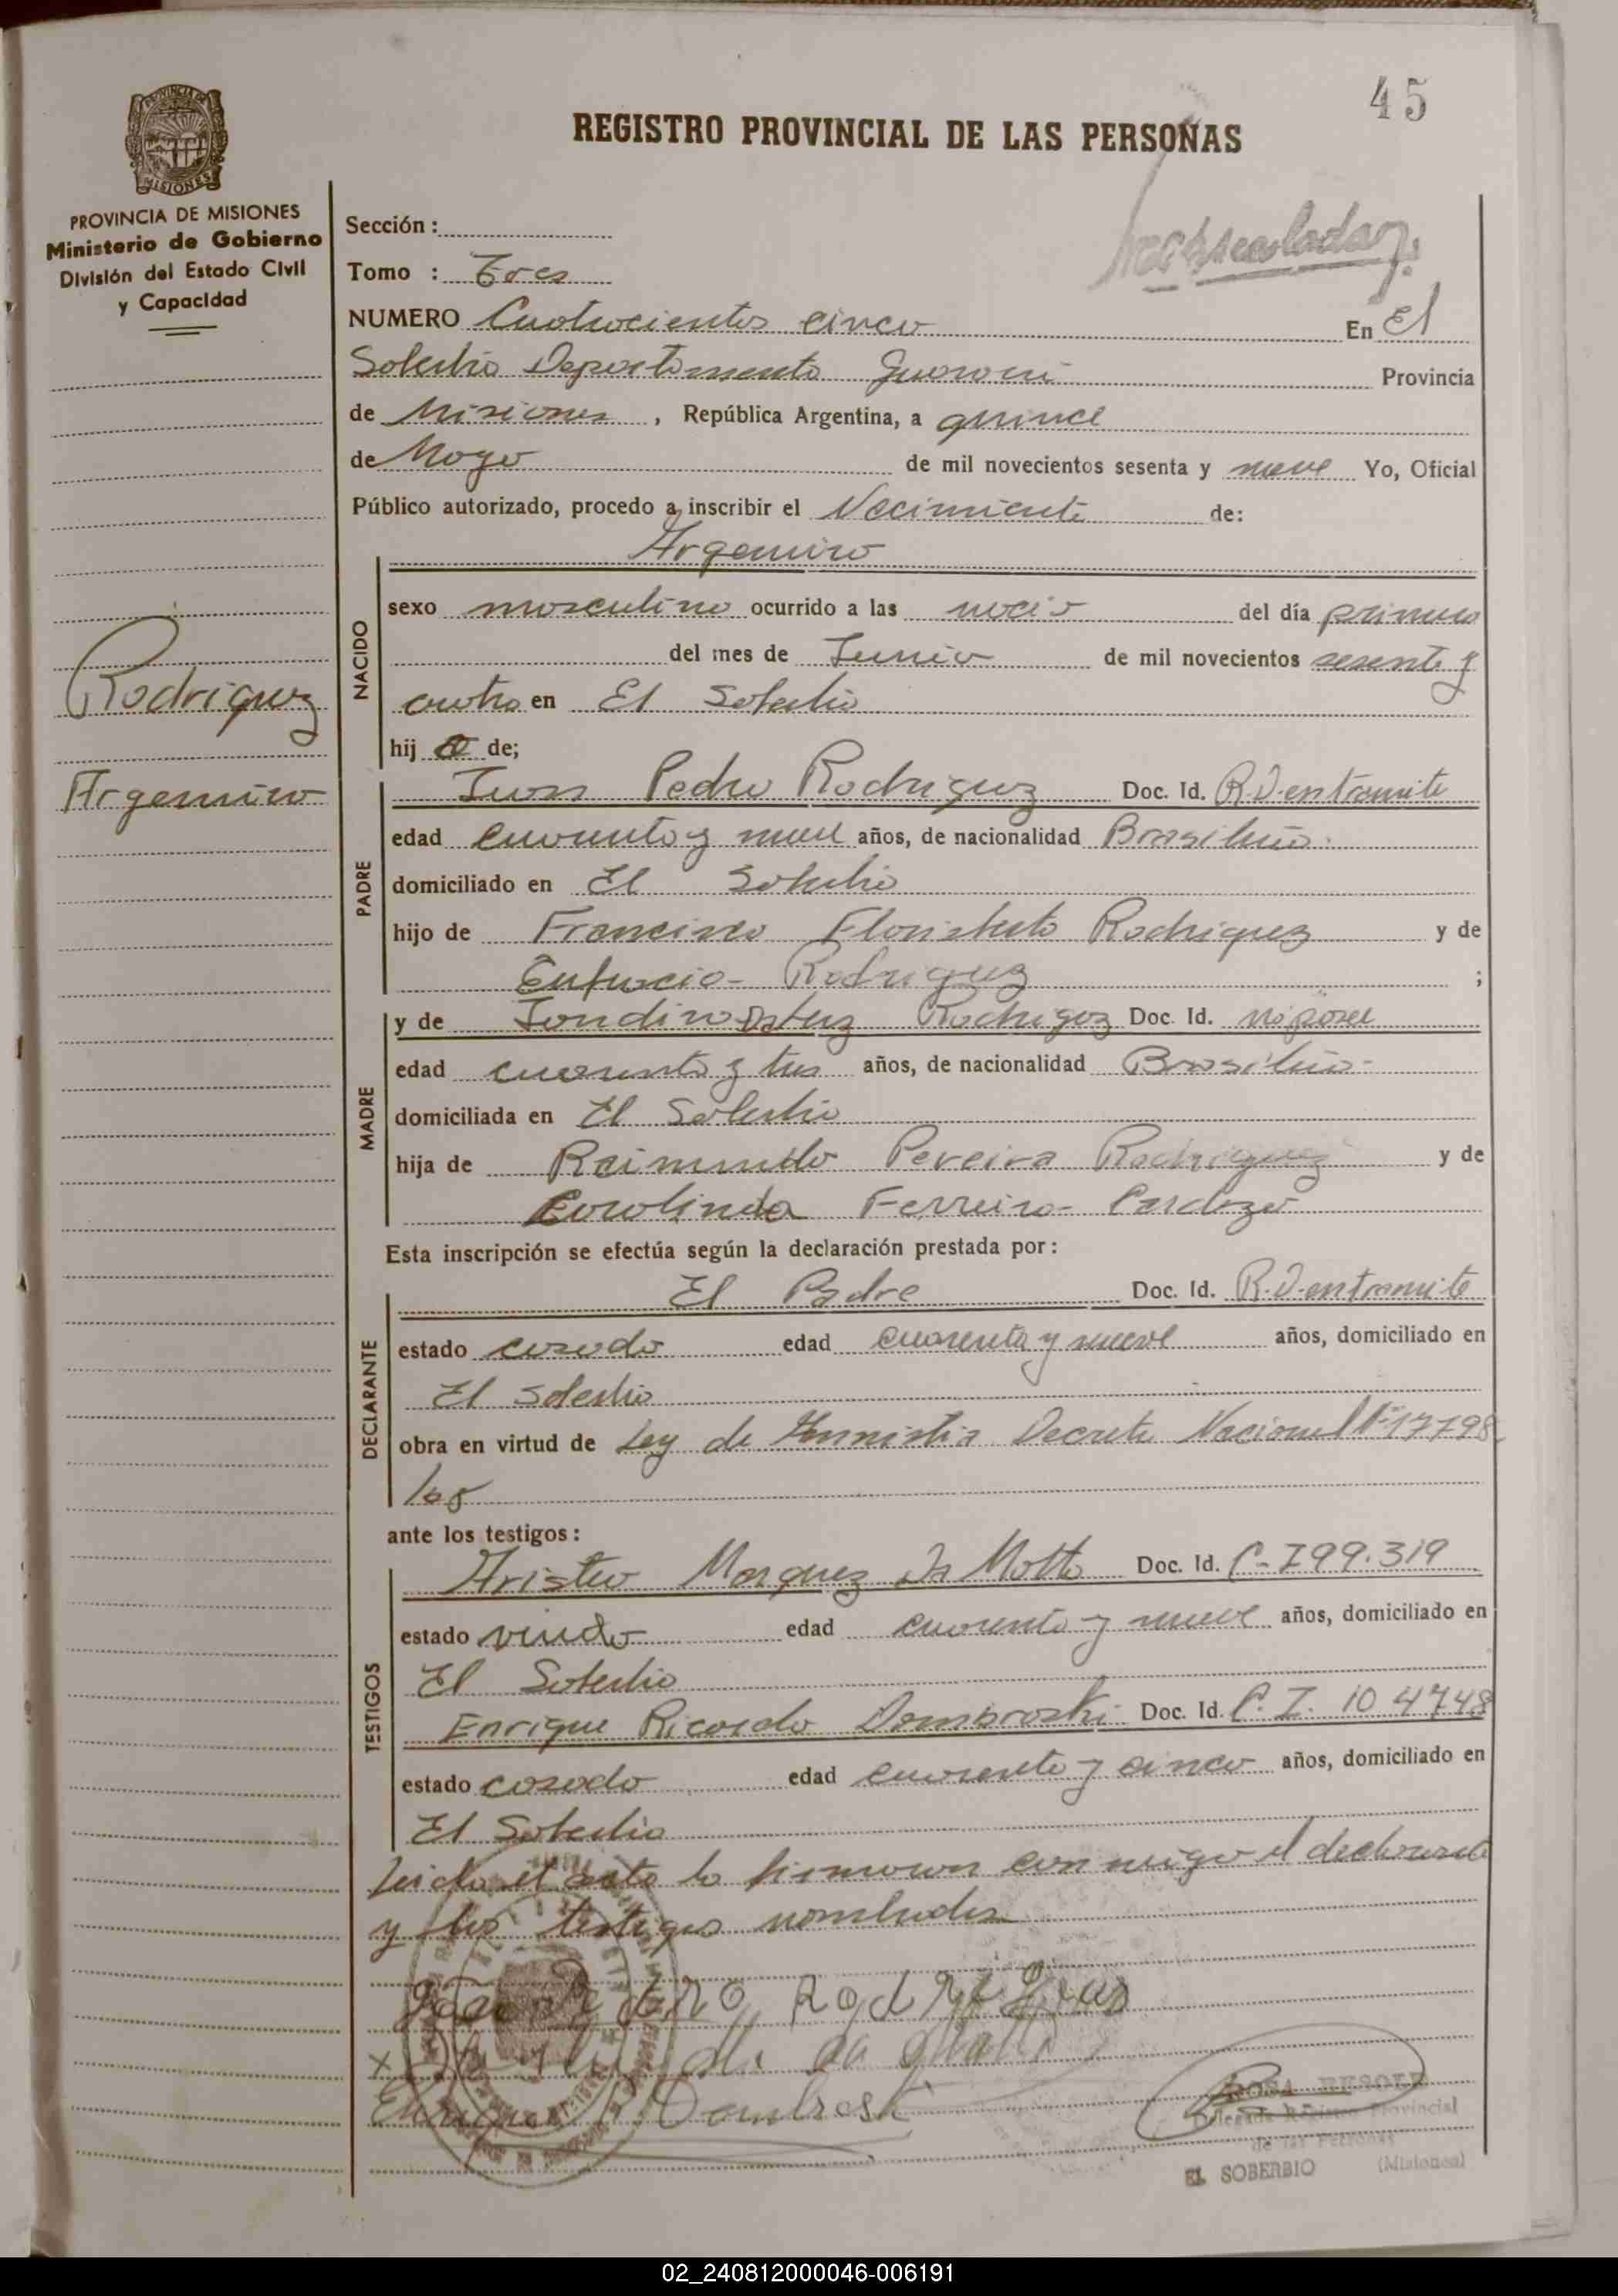 45
REGISTRO PROVINCIAL DE LAS PERSONAS
PROVINCIA DE MISIONES
Ministerio de Gobierno
División del Estado Civil
y Capacidad
Sección :
Tomo : Tres
NUMERO Cuatrocientos cinco En El
Soberbio Departamento Guarani Provincia
de Misiones, República Argentina, a quince
de Mayo de mil novecientos sesenta y nueve Yo, Oficial
Público autorizado, procedo a inscribir el Nacimiento de:
Argemiro
NACIDO
sexo masculino ocurrido a las del día primero
del mes de Junio de mil novecientos sesenta y
cuatro en El Soberbio
hij o de;
Rodriguez
Argemiro
PADRE
Juan Pedro Rodriguez Doc. Id. R.D. en tramite
edad cuarenta y nueve años, de nacionalidad Brasileña
domiciliado en El Soberbio
hijo de Francisco Rodriguez y de
Rodriguez ;
MADRE
y de Rodriguez Doc. Id. no posee
edad cuarenta y tres años, de nacionalidad Brasileña-
domiciliada en El Soberbio
hija de Raimundo Pereira Rodriguez y de
Carolinda Ferreira Cardozo
Esta inscripción se efectúa según la declaración prestada por:
DECLARANTE
El Padre Doc. Id. R.D. en tramite
estado casado edad cuarenta y nueve años, domiciliado en
El Soberbio
obra en virtud de Ley de Amnistia Decreto Nacional Nº 17798
ante los testigos:
TESTIGOS
Aristeo Marquez Da Motta Doc. Id. C- 799.319
estado viudo edad cuarenta y nueve años, domiciliado en
El Soberbio
Enrique Ricardo Dombroski Doc. Id. C.I. 104748
estado casado edad cuarenta y cinco años, domiciliado en
El Soberbio
Leida el acta la firmaron con migo el declarante
y los testigos nombrados
Rodrigues
Enrique Dombroski
Delegada Registro Provincial
de las Personas
EL SOBERBIO (Misiones)
02_240812000046-006191